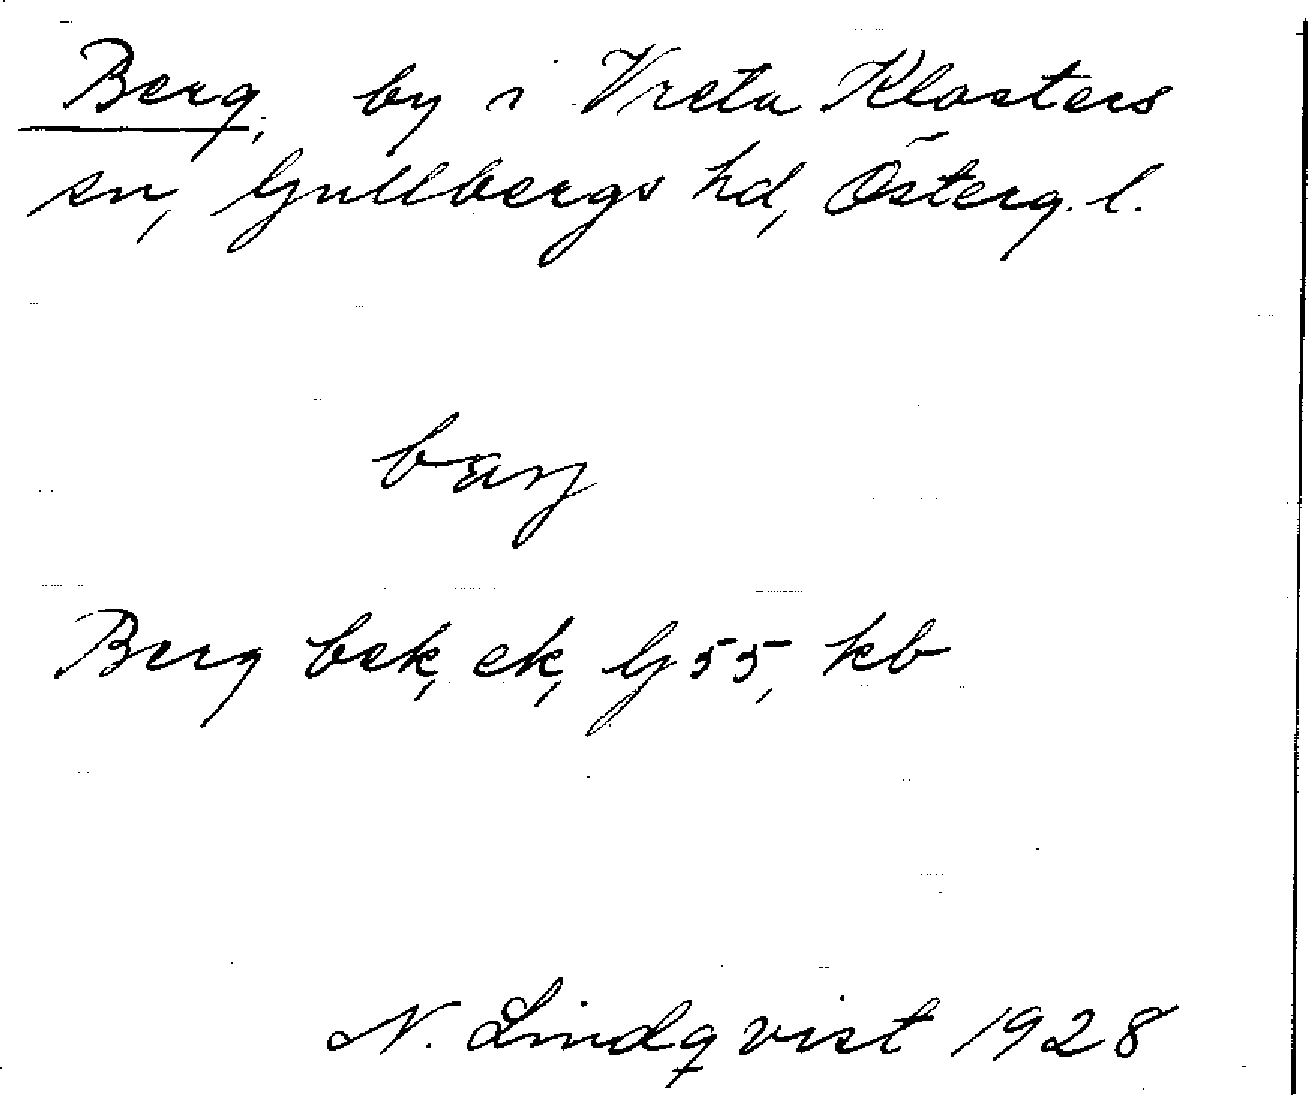 Berg, by i Vreta Klosters
sn, Gullbergs hd, Österg. l.
Berg bek, ek, G 55, kb
N. Lindqvist 1928